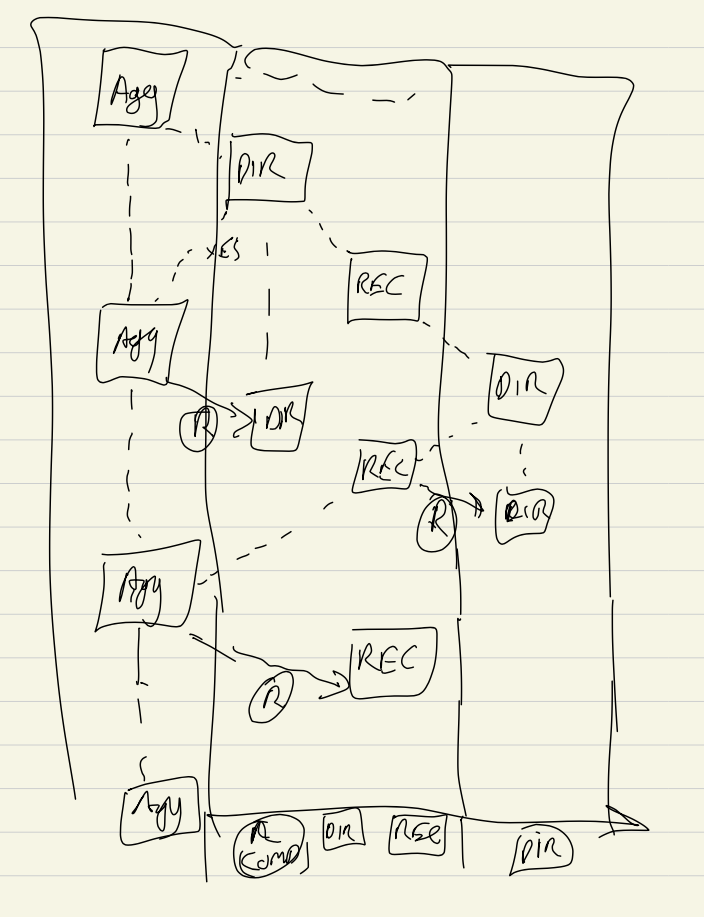 Agg
DIR
YES
REC
Agg
DIR
R
DIR
REC
DIR
R
Agg
REC
R
Agg
R
COMD
DIR
REC
DIR